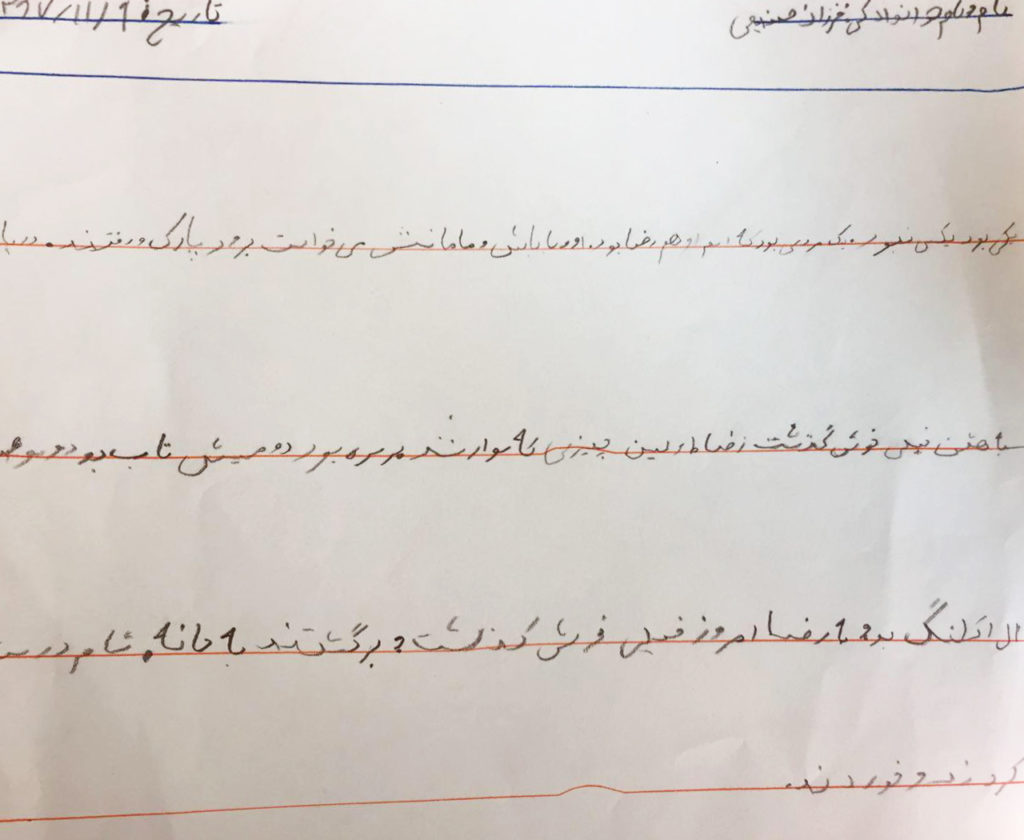 نام و نام خوانوادگی: فرزانه صنیعی تاریخ: ۹/۱۱/۳۹۷
یکی بود یکی نبود. یک مردی بود که اسم او هم رضا بود. او و بابایش و مامانش می خواست برود پارک و رفتند. در پا
خیلی خوش گذشت رضا اولین چیزی که سوار شد سرسره بود دومیش تاب بود و سوم
ال اکلنگ بود به رضا امروز خیلی خوش گذشت و برگشتند به خانه. شام درست
کردند و خوردند.